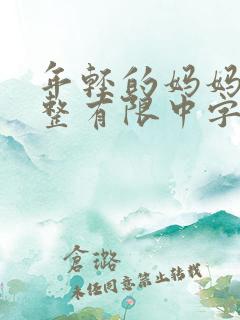 年轻的妈妈
整有限中字
仓璐
未任同意禁止转载